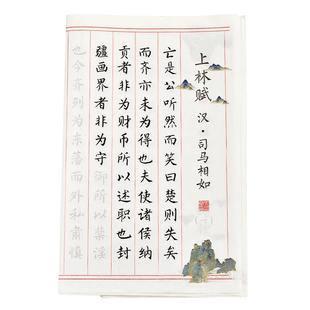 上林赋
汉·司马相如
(一)
亡是公听然而笑曰楚则失矣
而齐亦未为得也夫使诸侯纳
贡者非为财币所以述职也封
疆画界者非为守御所以禁淫
也今齐列为东藩而外私肃慎